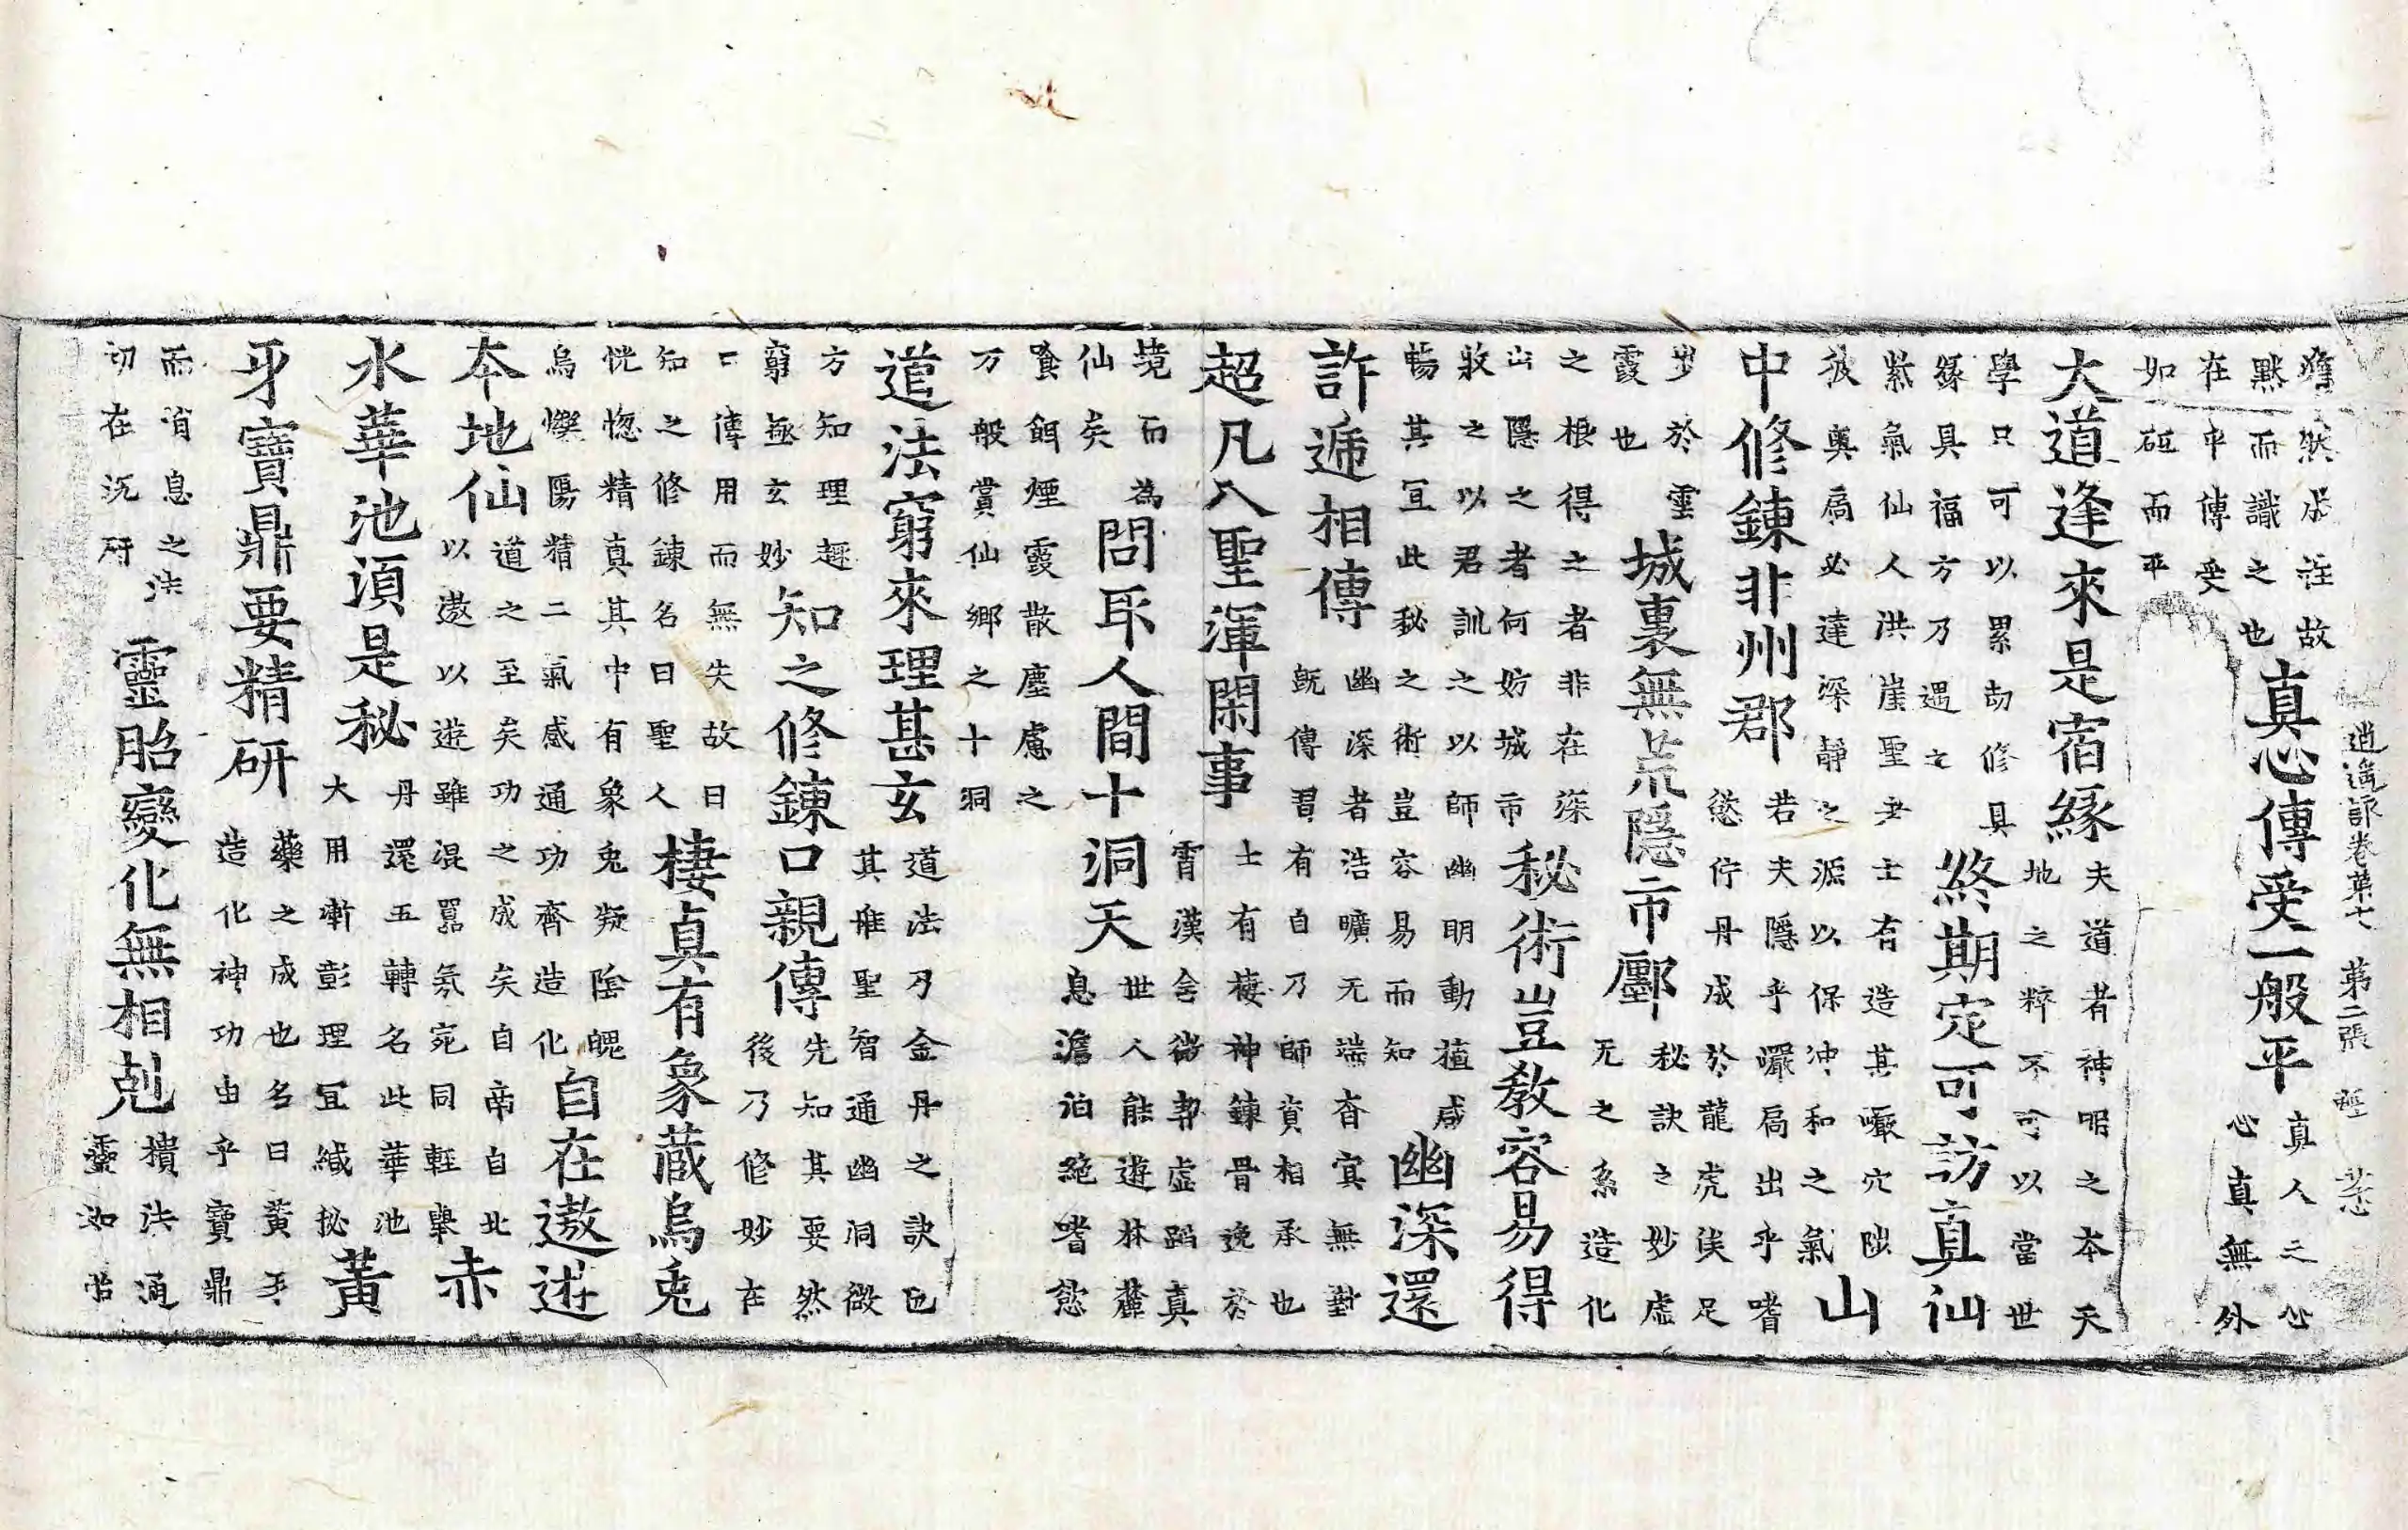 然虛注故
默而識之也
真心傳受一般平
真人之心
心真無外
在中傳受
如砥而平
逍遙詠卷第七 第二張
大道逢來是宿緣
夫道者神明之本天
地之粹不可以當世
學只可以累劫修具
緣具福方乃遇之
終期定可訪真仙
紫氣仙人洪崖聖尹士有造其巖穴陟
彼奧扃必達深靜之源以保沖和之氣
山
中修鍊非州郡
若夫隱乎巖扃出乎嗜
慾佇丹成於龍虎俟足
步於雲
霞也
城裏無荒隱市鄽
秘訣之妙虛
无之系造化
之根得之者非在深
山隱之者何妨城市
秘術豈教容易得
教之以君訓之以師幽明動植咸
暢其宜此秘之術豈容易而知
幽深還
許遞相傳
幽深者浩曠无端杳冥無對
既傳習有自乃師資相承也
超凡入聖渾閑事
士有棲神鍊骨逸於
霄漢含微契虛蹈真
境而為
仙矣
問取人間十洞天
世人能遊林麓
息澹泊絕嗜慾
餐餌煙霞散塵慮之
万般賞仙鄉之十洞
道法窮來理甚玄
道法乃金丹之訣也
其唯聖智通幽洞微
方知理趣
窮極玄妙
知之修鍊口親傳
先知其要然
後乃修妙在
口傳用而無失故曰
知之修鍊名曰聖人
棲真有象藏烏兔
恍惚精真其中有象兔凝陰魄
烏爍陽精二氣感通功齊造化
自在遨遊
本地仙
道之至矣功之成矣自帝自北
以遨以遊雖混嚚氛宛同輕舉
赤
水華池須是秘
丹還五轉名此華池
大用漸彰理宜緘秘
黃
牙寶鼎要精研
藥之成也名曰黃牙
造化神功由乎寶鼎
而消息之法
切在沉研
靈胎變化無相剋
積法通
靈